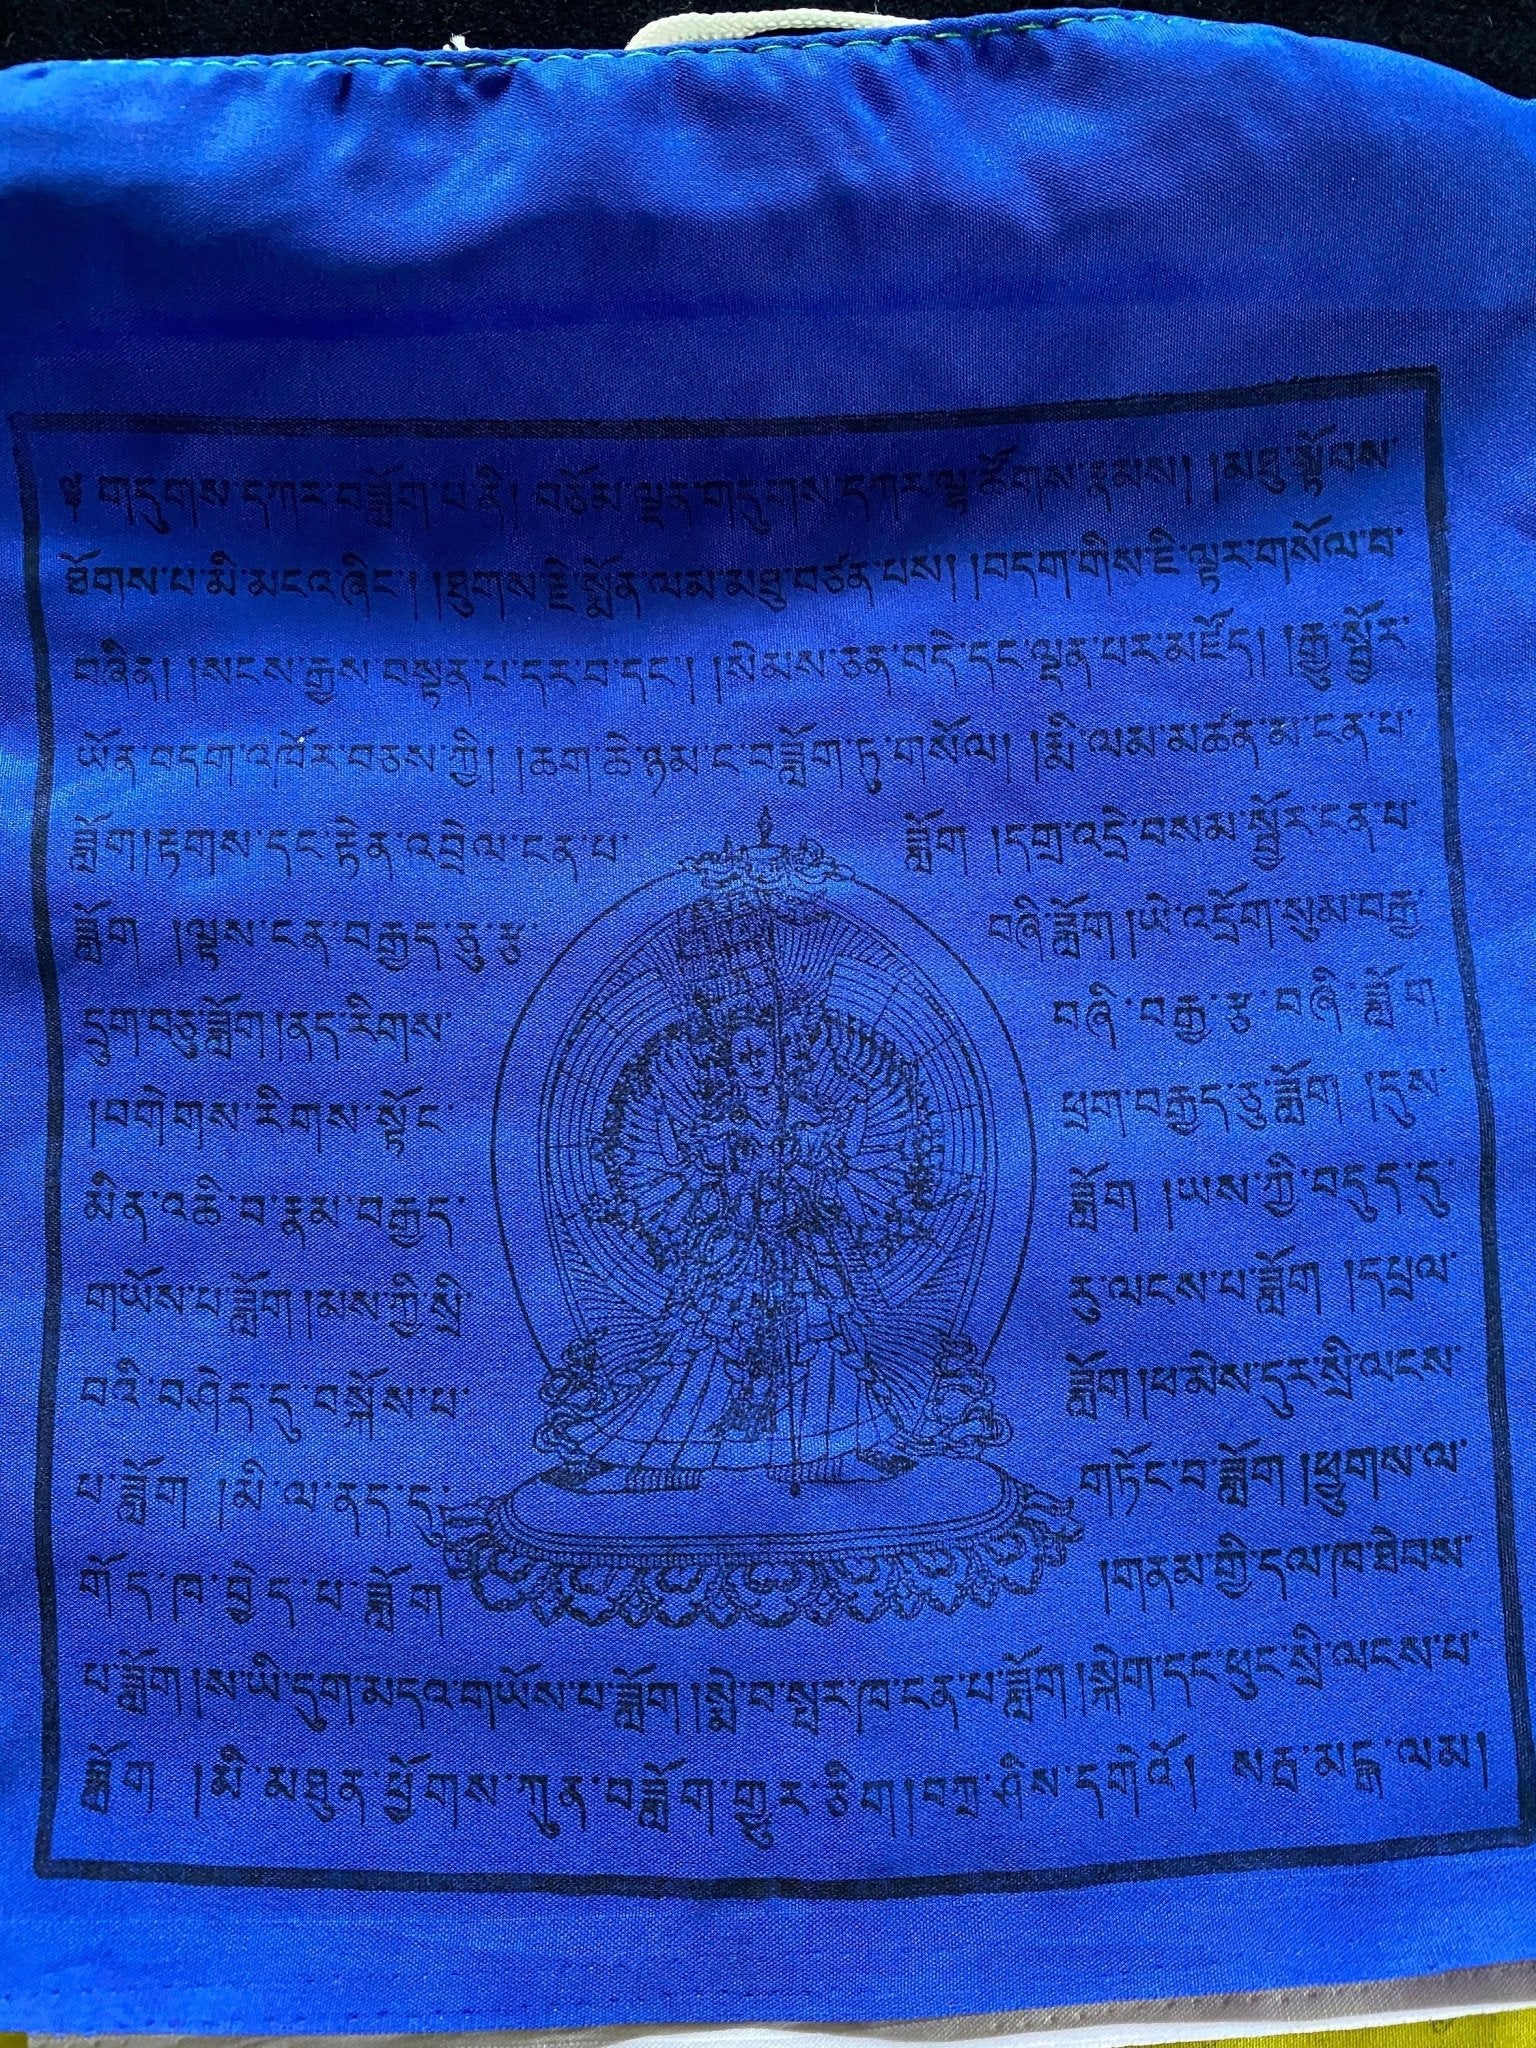 ༄ གདུགས་དཀར་བཟློག་པ་ནི། བཅོམ་ལྡན་གདུགས་དཀར་ལྷ་ཚོགས་རྣམས། །མཐུ་སྟོབས་
ཐོགས་པ་མི་མངའ་ཞིང་། །ཐུགས་རྗེ་སྨོན་ལམ་མཐུ་བཙན་པས། །བདག་གིས་ཇི་ལྟར་གསོལ་བ་
བཞིན། །སངས་རྒྱས་བསྟན་པ་དར་བ་དང་། །སེམས་ཅན་བདེ་དང་ལྡན་པར་མཛོད། །རྒྱུ་སྦྱོར་
ཡོན་བདག་འཁོར་བཅས་ཀྱི། །ཆག་ཆེ་ཉམ་ང་བཟློག་ཏུ་གསོལ། །རྨི་ལམ་མཚན་མ་ངན་པ་
ཟློག།རྟགས་དང་རྟེན་འབྲེལ་ངན་པ་ ཟློག །དགྲ་འདྲེ་བསམ་སྦྱོར་ངན་པ་
ཟློག །ལྟས་ངན་བརྒྱད་ཅུ་རྩ་ བཞི་ཟློག།ཡེ་འདྲོག་སུམ་བརྒྱ་
དྲུག་བཅུ་ཟློག།ནད་རིགས་ བཞི་བརྒྱ་རྩ་བཞི་ཟློག
།བགེགས་རིགས་སྟོང་ ཕྲག་བརྒྱད་ཅུ་ཟློག །དུས་
མིན་འཆི་བ་རྣམ་བརྒྱད་ ཟློག །ཡས་ཀྱི་བདུད་དུ་
གཡོས་པ་ཟློག།མས་ཀྱི་སྲི་ རུ་ལངས་པ་ཟློག །དཔལ་
བའི་བཤེད་དུ་བསྐོས་པ་ ཟློག།ཕ་མེས་དུར་སྲི་ལངས་
པ་ཟློག །མི་ལ་ནད་དང་ གཏོང་བ་ཟློག།ཕྱུགས་ལ་
གོད་ཁ་བྱེད་པ་ཟློག །གནམ་གྱི་དལ་ཁ་ཐེབས་
པ་ཟློག།ས་ཡི་དུག་མདའ་གཡོས་པ་ཟློག།སྨྲེ་བ་སྨྲར་ཁ་ངན་པ་ཟློག།སྐེག་དང་ཕུང་སྲི་ལངས་པ་
ཟློག །མི་མཐུན་ཕྱོགས་ཀུན་བཟློག་གྱུར་ཅིག།བཀྲ་ཤིས་དགེའོ། སརྦ་མངྒ་ལམ།